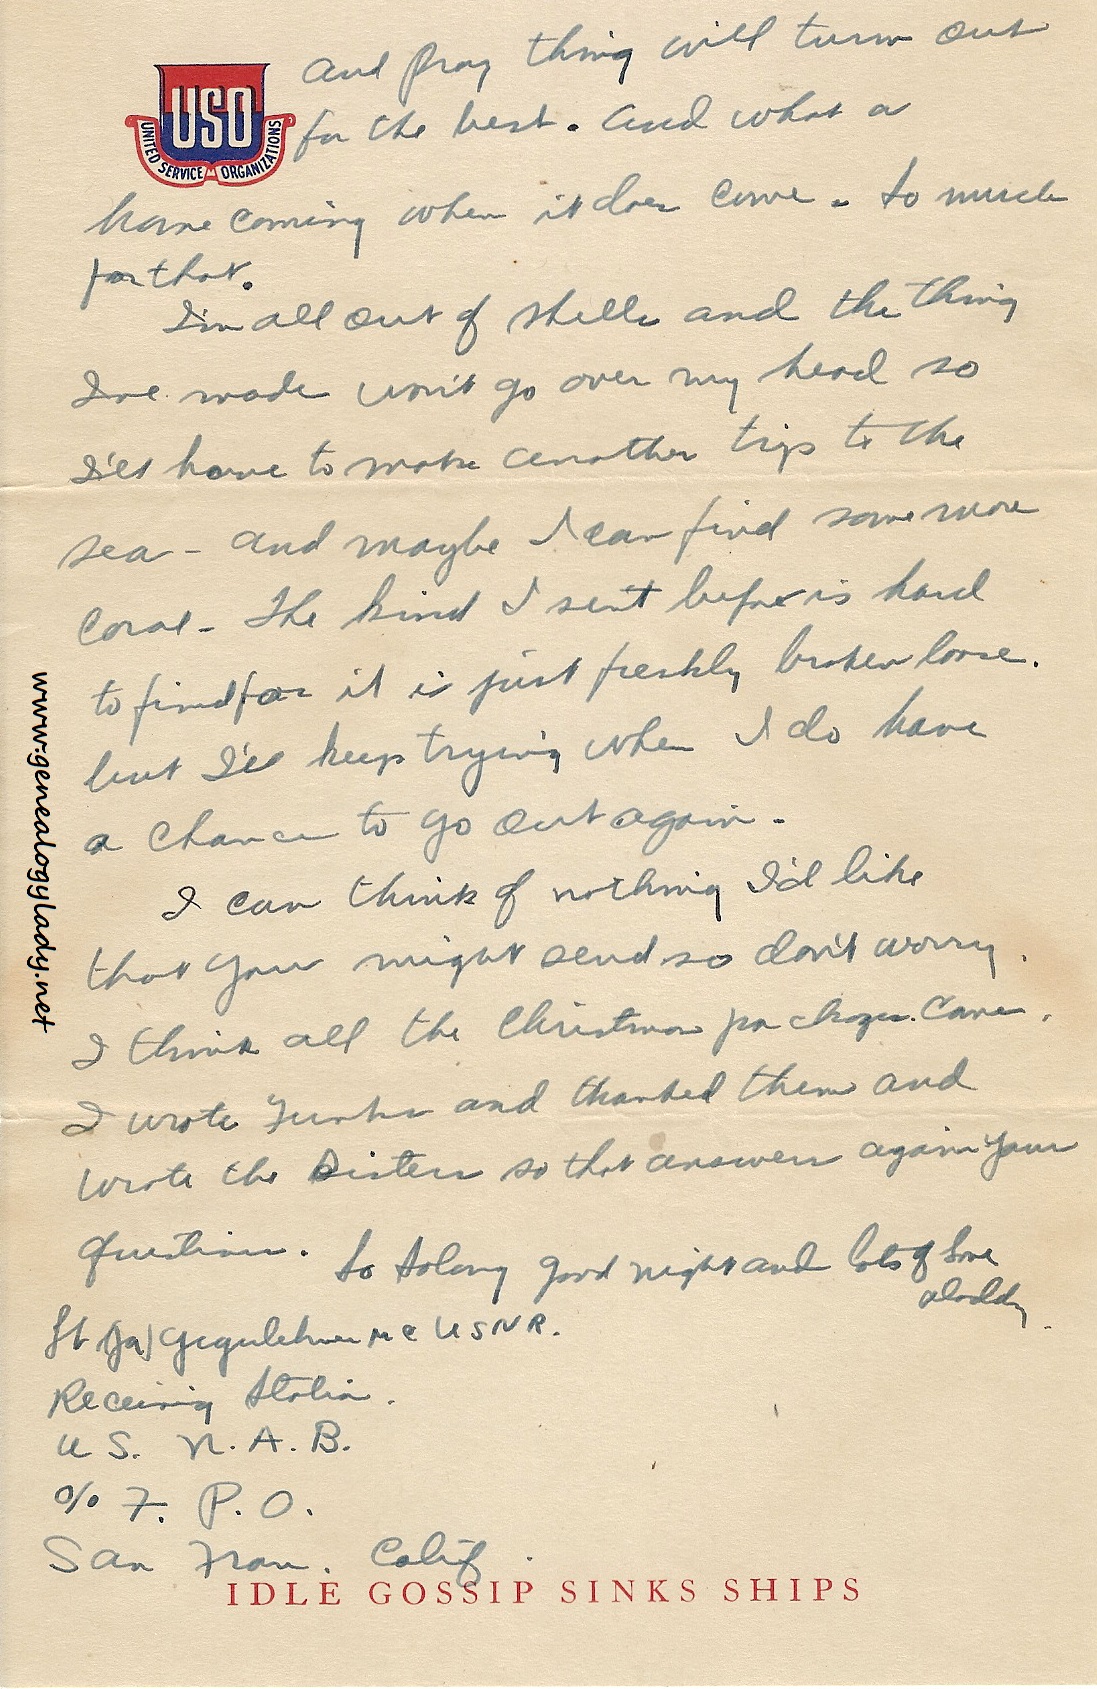 USO
UNITED SERVICE ORGANIZATIONS
and pray thing will turn out
for the best. And what a
home coming when it does come. So much
for that.
I'm all out of shells and the thing
I've made won't go over my head so
I'll have to make another trip to the
sea - and maybe I can find some more
coral - The kind I sent before is hard
to find for it is just freshly broken loose.
but I'll keep trying when I do have
a chance to go out again.
I can think of nothing I'd like
that you might send so don't worry.
I think all the Christmas packages came.
I wrote and thanked them and
wrote the Sisters so that answers again your
questions. So so long good night and lots of love
Daddy.
Lt (jg) G Yegerlehner MC USNR.
Receiving Station.
U S. N. A. B.
c/o F. P. O.
San Fran. Calif.
IDLE GOSSIP SINKS SHIPS
www.genealogylady.net